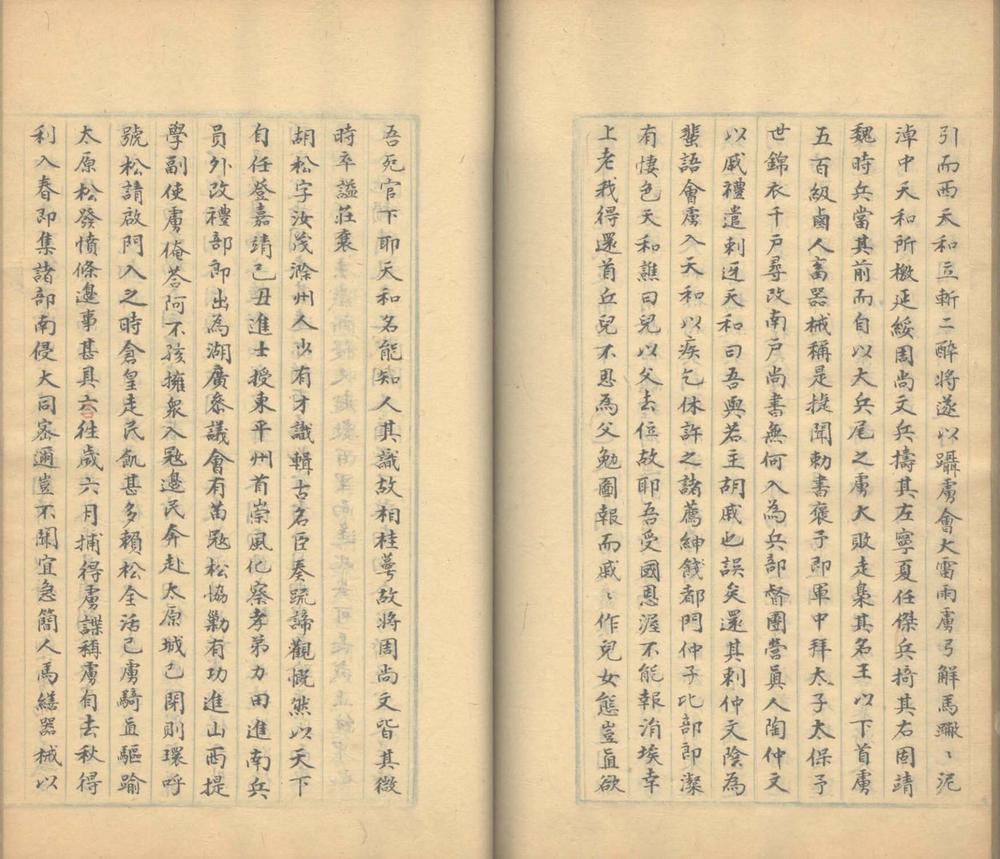 引而西天和立斬二酔將遂以躡虜會大雷雨虜弓解馬躐〻泥
淖中天和所檄延綏周尚文兵擣其左寧夏任傑兵掎其右固靖
魏時兵當其前而自以大兵尾之虜大敗走梟其名王以下首虜
五百級鹵人畜器械稱是捷聞勅書褒予即軍中拜太子太保予
世錦衣千戶尋改南戶尚書無何入為兵部督團營真人陶仲文
以戚禮遣刺迓天和曰吾與若主胡戚也誤矣還其刺仲文陰為
蜚語會虜入天和以疾乞休許之諸薦紳餞都門仲子比部郎潔
有悽色天和譙曰兒以父去位故耶吾受國恩渥不能報消埃幸
上老我得還首丘兒不思為父勉圖報而戚〻作兒女態豈直欲
吾死官下耶天和名能知人其識故相桂蕚故將周尚文皆其微
時卒謚莊襄
胡松字汝茂滁州人少有才識輯古名臣奏疏諦觀慨然以天下
自任登嘉靖己丑進士授東平州首崇風化察孝弟力田進南兵
員外改禮部郎出為湖廣叅議會有苗冦松協勦有功進山西提
學副使虜俺荅阿不孩擁衆入冦邊民奔赴太原城已閉則環呼
號松請啟門入之時倉皇走民飢甚多賴松全活已虜騎直驅踰
太原松發憤條邊事甚具六往歲六月捕得虜諜稱虜自去秋得
利入春即集諸部南侵大同密邇豈不聞宜急簡人馬繕器械以